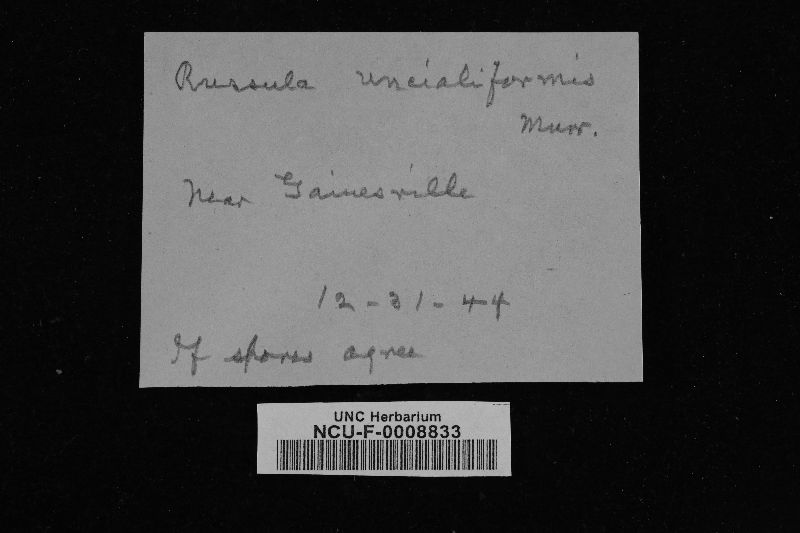 Russula uncialiformis
Murr.
Near Gainesville
12-31-44
If spores agree
UNC Herbarium
NCU-F-0008833